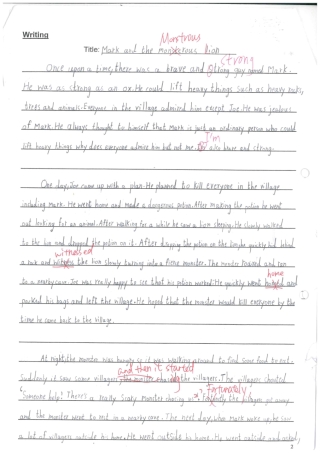 Writing
Monstrous
Title: Mark and the monsterous lion
strong
Once upon a time, there was a brave and strong guy named Mark.
He was as strong as an ox. He could lift heavy things such as heavy rocks,
trees and animals. Everyone in the village admired him except Joe. He was jealous
of Mark. He always thought to himself that Mark is just an ordinary person who could
I'm
lift heavy things why does everyone admire him but not me. also brave and strong.
One day, Joe came up with a plan. He planned to kill everyone in the village
including Mark. He went home and made a dangerous potion. After making the potion he went
out looking for an animal. After walking for a while he saw a lion sleeping. He slowly walked
to the lion and dropped the potion on it. After dropping the potion on the lion he quickly hid behind
witnessed
a rock and the lion slowly turning into a fierce monster. The monster roared and ran
home
to a nearby cave. Joe was really happy to see that his potion worked. He quickly went and
packed his bags and left the village. He hoped that the monster would kill everyone by the
time he came back to the village.
At night, the monster was hungry so it was walking around to find some food to eat.
and then it started
Suddenly it saw some villagers. The monster chasing the villagers. The villagers shouted
Fortunately
"Someone help! There's a really scary monster chasing us." the villagers got away
and the monster went to rest in a nearby cave. The next day, when Mark woke up, he saw
a lot of villagers outside his home. He went outside his home. He went outside and asked,
1